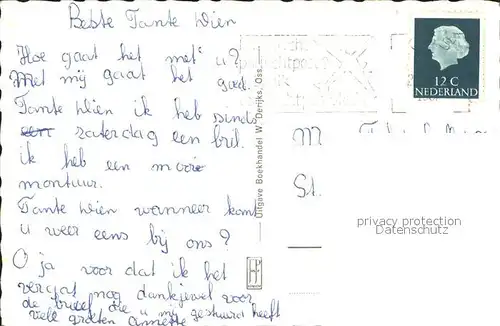 Beste Tante Wien
Hoe gaat het met u?
Met mij gaat het goed.
Tante Wien ik heb sinds
een zaterdag een bril.
ik heb een mooie
montuur.
Tante Wien wanneer komt
u weer eens bij ons?
O ja voor dat ik het
vergat nog dankjewel voor
de brief die u mij gestuurd heeft
vele groeten Annette
Uitgave Boekhandel W. Derijks, Oss.
12 C
NEDERLAND
M
St.
privacy protection
Datenschutz